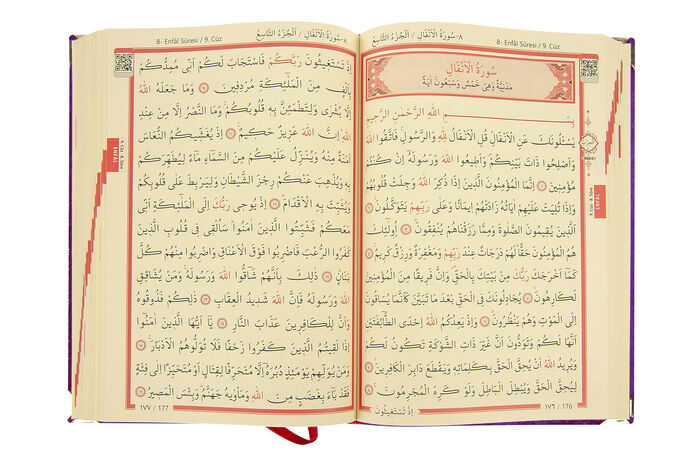 8- Enfâl Sûresi / 9. Cüz
٨-سُورَةُ الْاَنْفَالِ / اَلْجُزْءُ التَّاسِعُ
سُورَةُ الْاَنْفَالِ
مَدَنِيَّةٌ وَهِيَ خَمْسٌ وَسَبْعُونَ اٰيَةً
بِسْمِ اللّٰهِ الرَّحْمٰنِ الرَّحِيمِ
يَسْـَٔلُونَكَ عَنِ الْاَنْفَالِ قُلِ الْاَنْفَالُ لِلّٰهِ وَالرَّسُولِ فَاتَّقُوا اللّٰهَ
وَاَصْلِحُوا ذَاتَ بَيْنِكُمْ وَاَطِيعُوا اللّٰهَ وَرَسُولَهُٓ اِنْ كُنْتُمْ
مُؤْمِنِينَ ﴿١﴾ اِنَّمَا الْمُؤْمِنُونَ الَّذِينَ اِذَا ذُكِرَ اللّٰهُ وَجِلَتْ قُلُوبُهُمْ
وَاِذَا تُلِيَتْ عَلَيْهِمْ اٰيَاتُهُ زَادَتْهُمْ اِيمَانًا وَعَلٰى رَبِّهِمْ يَتَوَكَّلُونَ ﴿٢﴾
اَلَّذِينَ يُقِيمُونَ الصَّلٰوةَ وَمِمَّا رَزَقْنَاهُمْ يُنْفِقُونَ ﴿٣﴾ اُولٰٓئِكَ
هُمُ الْمُؤْمِنُونَ حَقًّا لَهُمْ دَرَجَاتٌ عِنْدَ رَبِّهِمْ وَمَغْفِرَةٌ وَرِزْقٌ كَرِيمٌ ﴿٤﴾
كَمَٓا اَخْرَجَكَ رَبُّكَ مِنْ بَيْتِكَ بِالْحَقِّ وَاِنَّ فَرِيقًا مِنَ الْمُؤْمِنِينَ
لَكَارِهُونَ ﴿٥﴾ يُجَادِلُونَكَ فِي الْحَقِّ بَعْدَ مَا تَبَيَّنَ كَاَنَّمَا يُسَاقُونَ
اِلَى الْمَوْتِ وَهُمْ يَنْظُرُونَ ﴿٦﴾ وَاِذْ يَعِدُكُمُ اللّٰهُ اِحْدَى الطَّٓائِفَتَيْنِ
اَنَّهَا لَكُمْ وَتَوَدُّونَ اَنَّ غَيْرَ ذَاتِ الشَّوْكَةِ تَكُونُ لَكُمْ
وَيُرِيدُ اللّٰهُ اَنْ يُحِقَّ الْحَقَّ بِكَلِمَاتِهِ وَيَقْطَعَ دَابِرَ الْكَافِرِينَ ﴿٧﴾
لِيُحِقَّ الْحَقَّ وَيُبْطِلَ الْبَاطِلَ وَلَوْ كَرِهَ الْمُجْرِمُونَ ﴿٨﴾
اِذْ تَسْتَغِيثُونَ
١٧٦ / 176
9. Cüz 8. Sûre
ENFÂL
8- Enfâl Sûresi / 9. Cüz
٨-سُورَةُ الْاَنْفَالِ / اَلْجُزْءُ التَّاسِعُ
اِذْ تَسْتَغِيثُونَ رَبَّكُمْ فَاسْتَجَابَ لَكُمْ اَنِّي مُمِدُّكُمْ
بِاَلْفٍ مِنَ الْمَلٰٓئِكَةِ مُرْدِفِينَ ﴿٩﴾ وَمَا جَعَلَهُ اللّٰهُ
اِلَّا بُشْرٰى وَلِتَطْمَئِنَّ بِهِ قُلُوبُكُمْ وَمَا النَّصْرُ اِلَّا مِنْ عِنْدِ
اللّٰهِ اِنَّ اللّٰهَ عَزِيزٌ حَكِيمٌ ﴿١٠﴾ اِذْ يُغَشِّيكُمُ النُّعَاسَ
اَمَنَةً مِنْهُ وَيُنَزِّلُ عَلَيْكُمْ مِنَ السَّمَٓاءِ مَٓاءً لِيُطَهِّرَكُمْ
بِهِ وَيُذْهِبَ عَنْكُمْ رِجْزَ الشَّيْطَانِ وَلِيَرْبِطَ عَلٰى قُلُوبِكُمْ
وَيُثَبِّتَ بِهِ الْاَقْدَامَ ﴿١١﴾ اِذْ يُوحِي رَبُّكَ اِلَى الْمَلٰٓئِكَةِ اَنِّي
مَعَكُمْ فَثَبِّتُوا الَّذِينَ اٰمَنُوا سَاُلْقِي فِي قُلُوبِ الَّذِينَ
كَفَرُوا الرُّعْبَ فَاضْرِبُوا فَوْقَ الْاَعْنَاقِ وَاضْرِبُوا مِنْهُمْ كُلَّ
بَنَانٍ ﴿١٢﴾ ذٰلِكَ بِاَنَّهُمْ شَٓاقُّوا اللّٰهَ وَرَسُولَهُ وَمَنْ يُشَاقِقِ
اللّٰهَ وَرَسُولَهُ فَاِنَّ اللّٰهَ شَدِيدُ الْعِقَابِ ﴿١٣﴾ ذٰلِكُمْ فَذُوقُوهُ
وَاَنَّ لِلْكَافِرِينَ عَذَابَ النَّارِ ﴿١٤﴾ يَٓا اَيُّهَا الَّذِينَ اٰمَنُٓوا
اِذَا لَقِيتُمُ الَّذِينَ كَفَرُوا زَحْفًا فَلَا تُوَلُّوهُمُ الْاَدْبَارَ ﴿١٥﴾
وَمَنْ يُوَلِّهِمْ يَوْمَئِذٍ دُبُرَهُٓ اِلَّا مُتَحَرِّفًا لِقِتَالٍ اَوْ مُتَحَيِّزًا اِلٰى فِئَةٍ
فَقَدْ بَٓاءَ بِغَضَبٍ مِنَ اللّٰهِ وَمَأْوٰيهُ جَهَنَّمُ وَبِئْسَ الْمَصِيرُ ﴿١٦﴾
١٧٧ / 177
9. Cüz 8. Sûre
ENFÂL